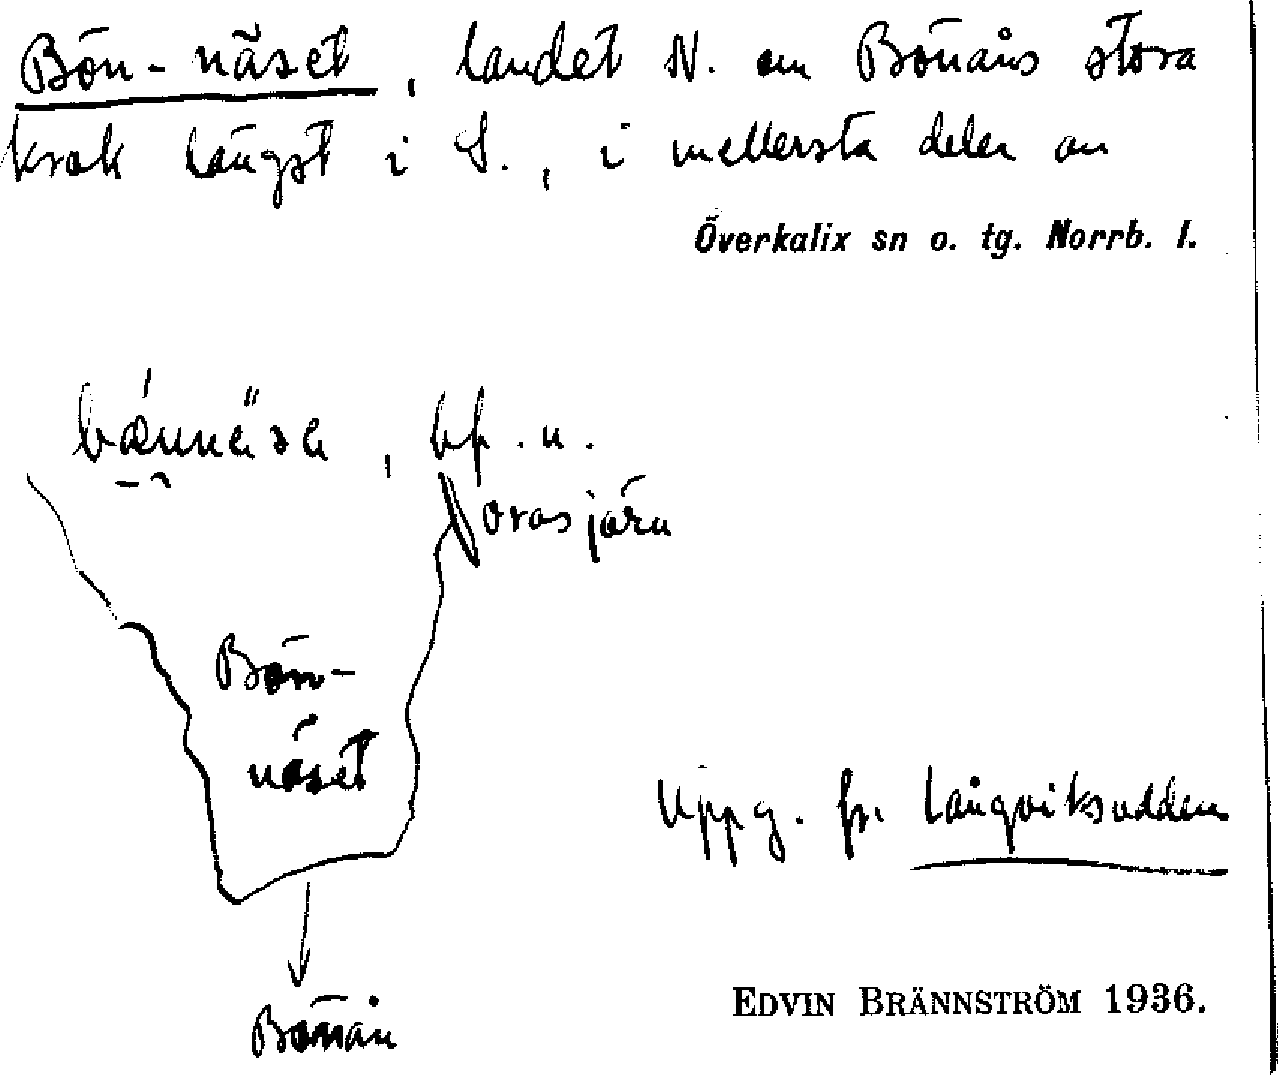 Bön-näset, landet N. om Bönåns stora
krok längst i S., i mellersta delen av
Överkalix sn o. tg. Norrb. l.
bf. n.
Bön-
näset
Uppg. fr. Långviksudden
Bönån
EDVIN BRÄNNSTRÖM 1936.